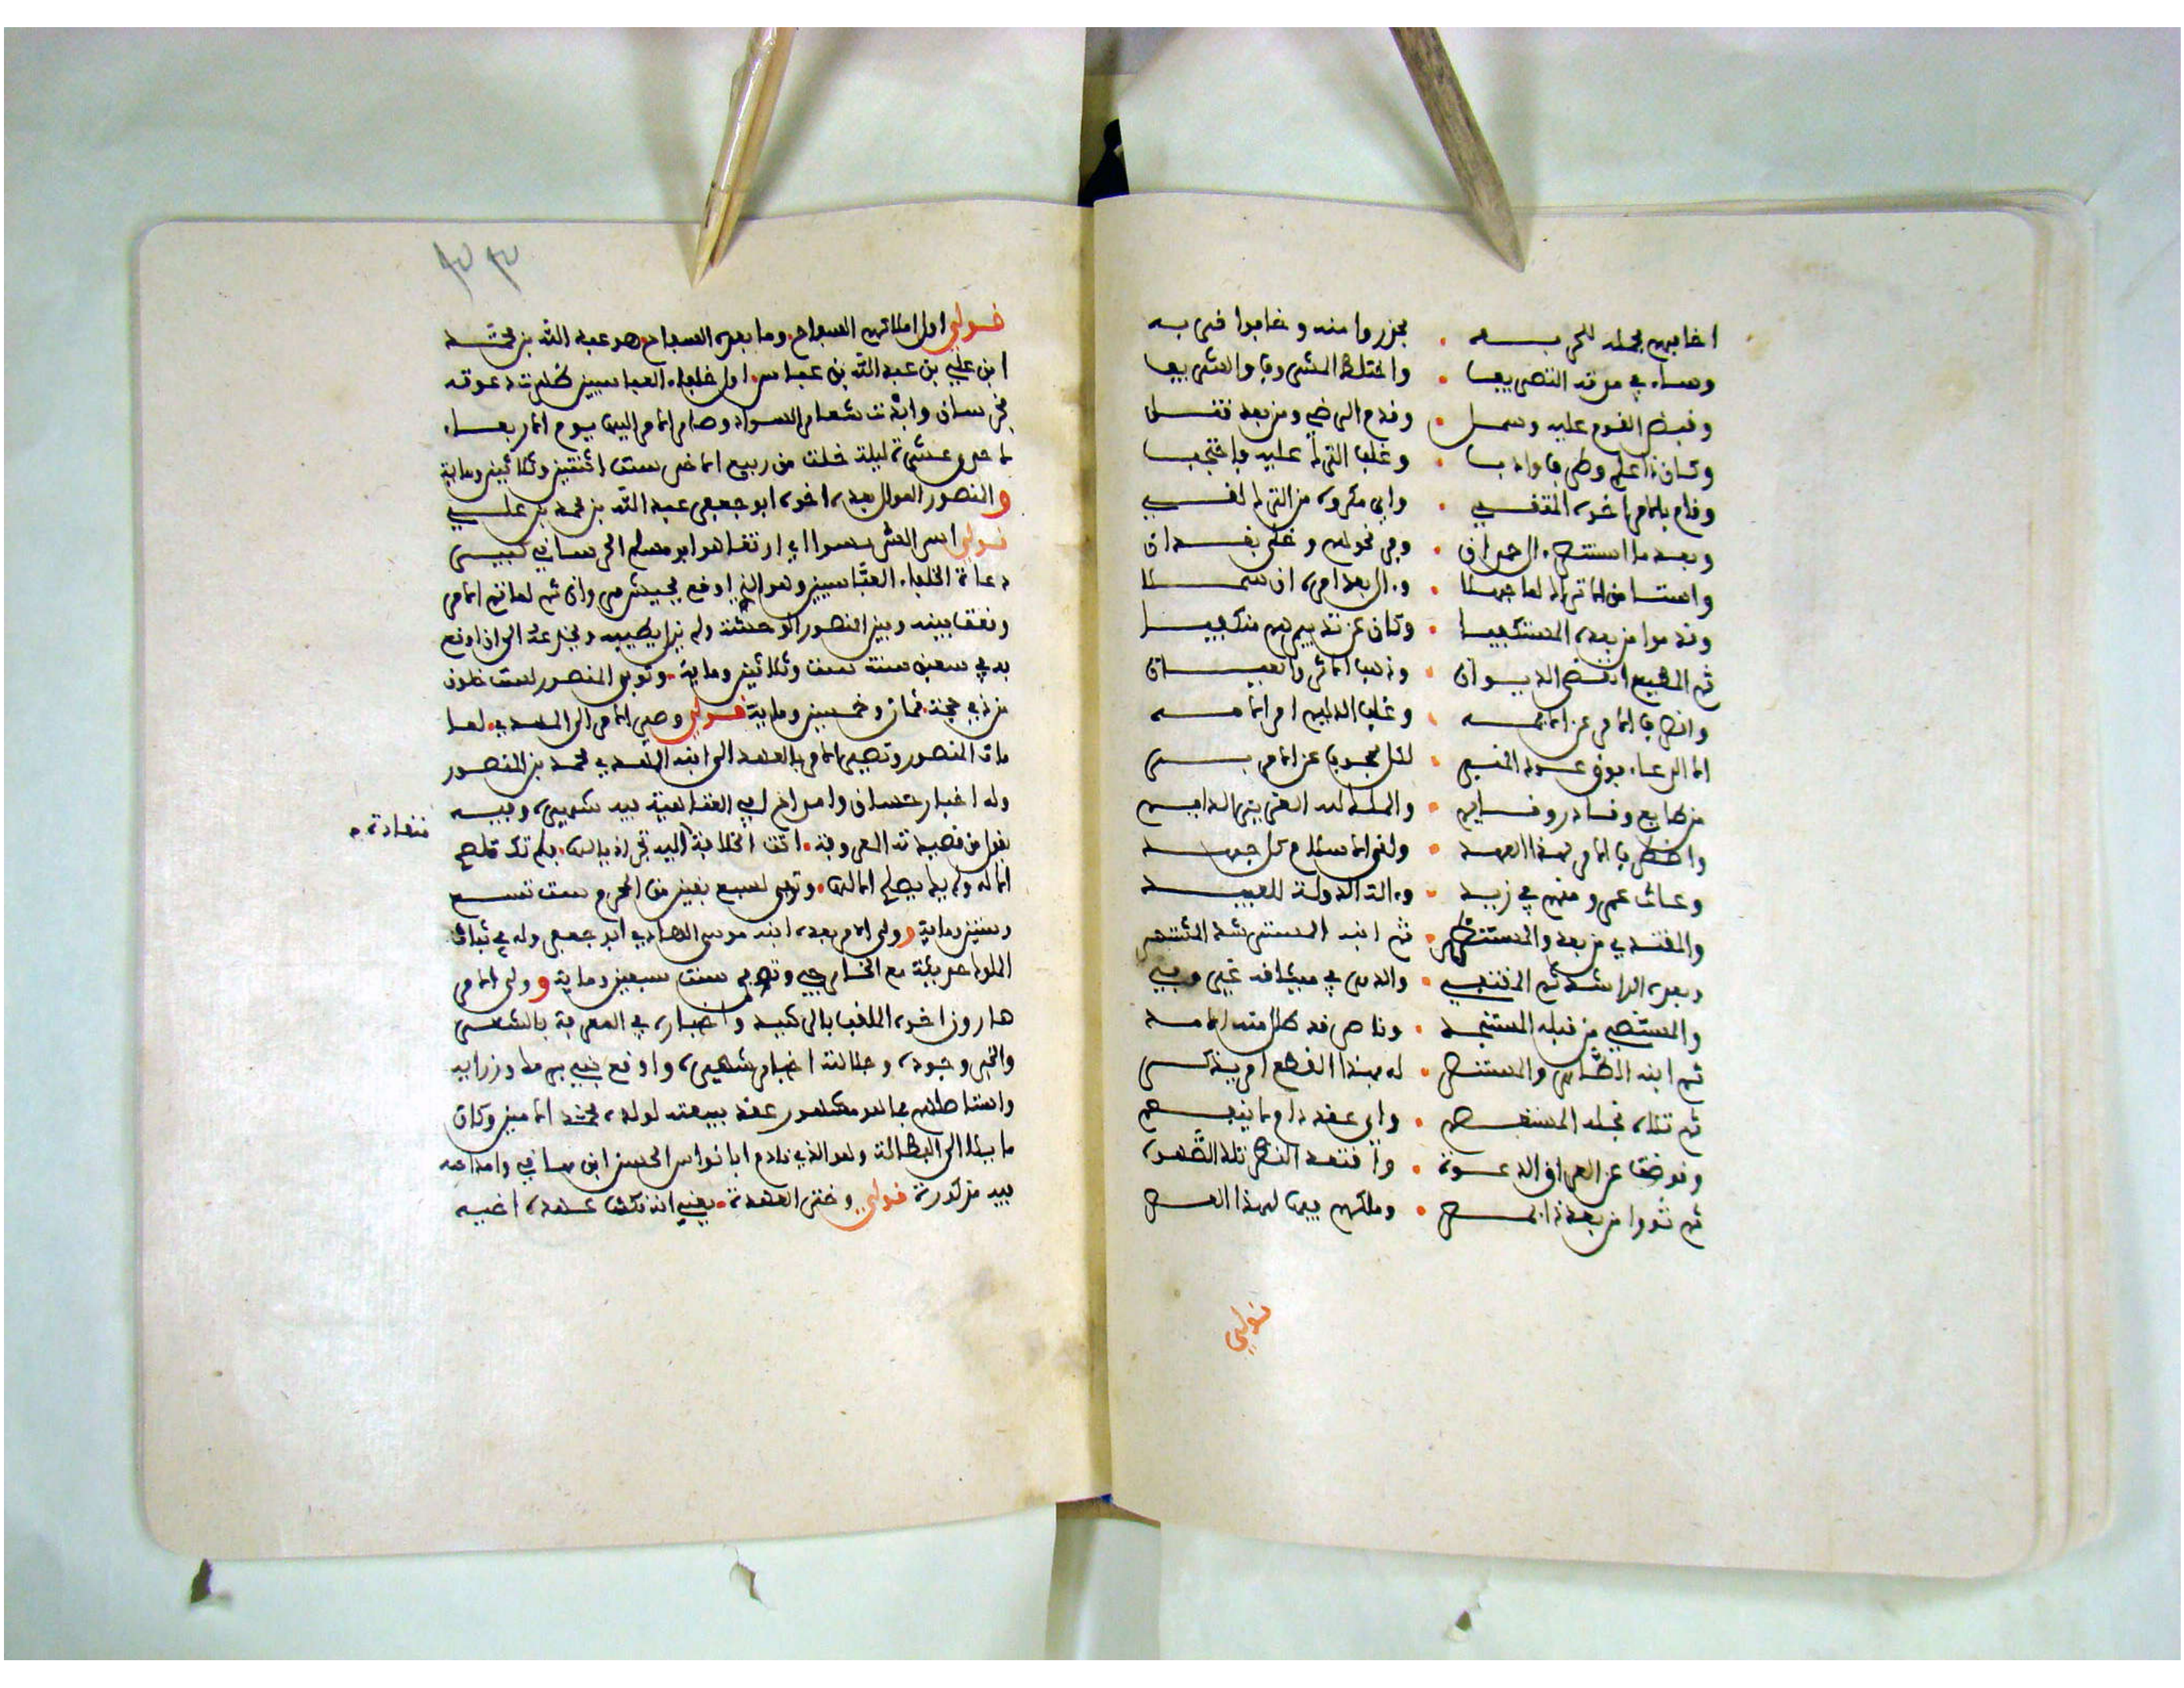 اخافهم بجده للحربه • فجزروا منه وخافوا قربه
وساء في موته التصريفا • واختلط المشروف والشريفا
وقبض القوم عليه وسمل • وقدم الراضي ومن بعد قتل
وكان ذا علم وظرف وادب • وغلب الترك عليه واحتجب
وقام بالامر اخوه المتقي • وأي مكروه من الترك لقي
وبعد ما استنصر آل حمدان • وفر نحوهم وخلى بغدان
وآل بعد امره ان سملا
وقدموا من بعده المستكفيا • وكان عن تدبيرهم منكفيا
ثم المطيع انقضى الديوان • وذهب الاثر والعيان
وانصرف الامر عن الايمه • وغلب الديلم امر الامه
الا الدعاء فوق عود المنبر • لكل محجوب عن الامر بري
من طايع وقادر وقايم • والملك لله العزيز الدايم
واضطرب الامر لهذا العهد • ولقي الاسلام كل جهد
وعاث عمرو منهم في زيد • وآلت الدولة للعبيد
والمقتدي من بعده والمستظهر • ثم ابنه المسترشد المشتهر
وبعده الراشد ثم المقتفي • والدهر في ميثاقه غير وفي
والمستضي من قبله المستنجد • وناصر قد طال منه الامد
ثم ابنه الظاهر والمستنصر • له بهذا القطع امر يذكر
ثم تلاه نجله المستعصم • وأي عقد دام ما ينفصم
وقوضت عن العراق الدعوة • وافتقد النصر تلك الصهوه
ثم ثووا من بعد ذا بمصر • وملكهم فيها لهذا العصر
قولي
قولي اول املاكهم السفاح • وما بعده السفاح هو عبد الله بن محمد
ابن علي بن عبد الله بن عباس • اول خلفاء العباسيين ظهرت دعوته
بخرسان وابدت شعار السواد وصار الامر اليها يوم الاربعاء
لاحدى عشرة ليلة خلت من ربيع الاخر سنة اثنتين وثلاثين وماية
والمنصور الموالي بعده اخوه ابو جعفر عبد الله بن محمد بن علي
قولي اس الشر بسوا اي ارتفا هو ابو مسلم الخرساني كبير
دعاة الخلفاء العباسيين وهو الذي اوقع بجيش مروان ثم لما تم الامر
وقعت بينه وبين المنصور الوحشة ولم يزل يطلبه ويخدعه الى ان اوقع
به في سعبن سنة ست وثلاثين وماية • وتوفي المنصور لست خلون
من ذي حجة ثمان وخمسين وماية قولي وصير الامر الى المهدي • لما
مات المنصور وتصير الامر بالعهد الى ابنه المهدي محمد بن المنصور
وله اخبار حسان وامر اخر ابي العتاهية فيه شهير • وفيه
يقول من قصيدته المعروفة • اتت الخلافة اليه تجر اذيالها • فلم تك تصلح
منقادة
الا له ولم يك يصلح الا لها • وتوفي لسبع بقين من المحرم سنة تسع
وستين وماية وولي الامر بعده ابنه موسى الهادي ابو جعفر وله في ثبات
الملوك حربية مع الخارجي وتوفي سنة سبعين وماية وولي الامر
هارون اخوه الملقب بالرشيد واخباره في المعرفة بالشعر
والخير وجوده وجلالته اخبار شهيره واوقع ببني برمك وزرايه
واستاصلهم بما هو مشهور عقد بيعته لولده محمد الامين وكان
مايلا الى البطالة وهو الذي نادم ابا نواس الحسن ابن هاني وامداحه
فيه مذكورة قولي وختر العهدة • يعني انه نكث عهده اخيه